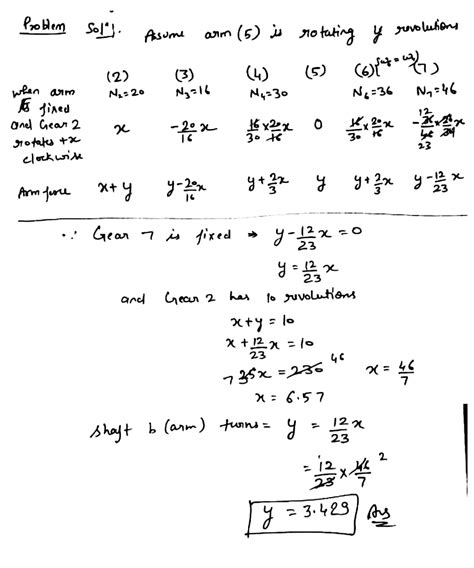 Problem Soln. Assume arm (5) is rotating y revolutions
(2) (3) (4) (5) (6) [ω4 = ω6] (7)
when arm N2=20 N3=16 N4=30 N6=36 N7=46
is fixed
and Gear 2 x -20/16 x 16/30 × 20/16 x 0 16/30 × 20/16 x -12/23
rotates +x
clockwise
Arm free x+y y-20/16 x y+2/3 x y y+2/3 x y-12/23 x
∵ Gear 7 is fixed ⇒ y-12/23 x = 0
y = 12/23 x
and Gear 2 has 10 revolutions
x+y = 10
x + 12/23 x = 10
7 35x = 230 46 x = 46/7
x = 6.57
shaft b (arm) turns = y = 12/23 x
= 12/23 × 46/7 2
y = 3.429 Ans